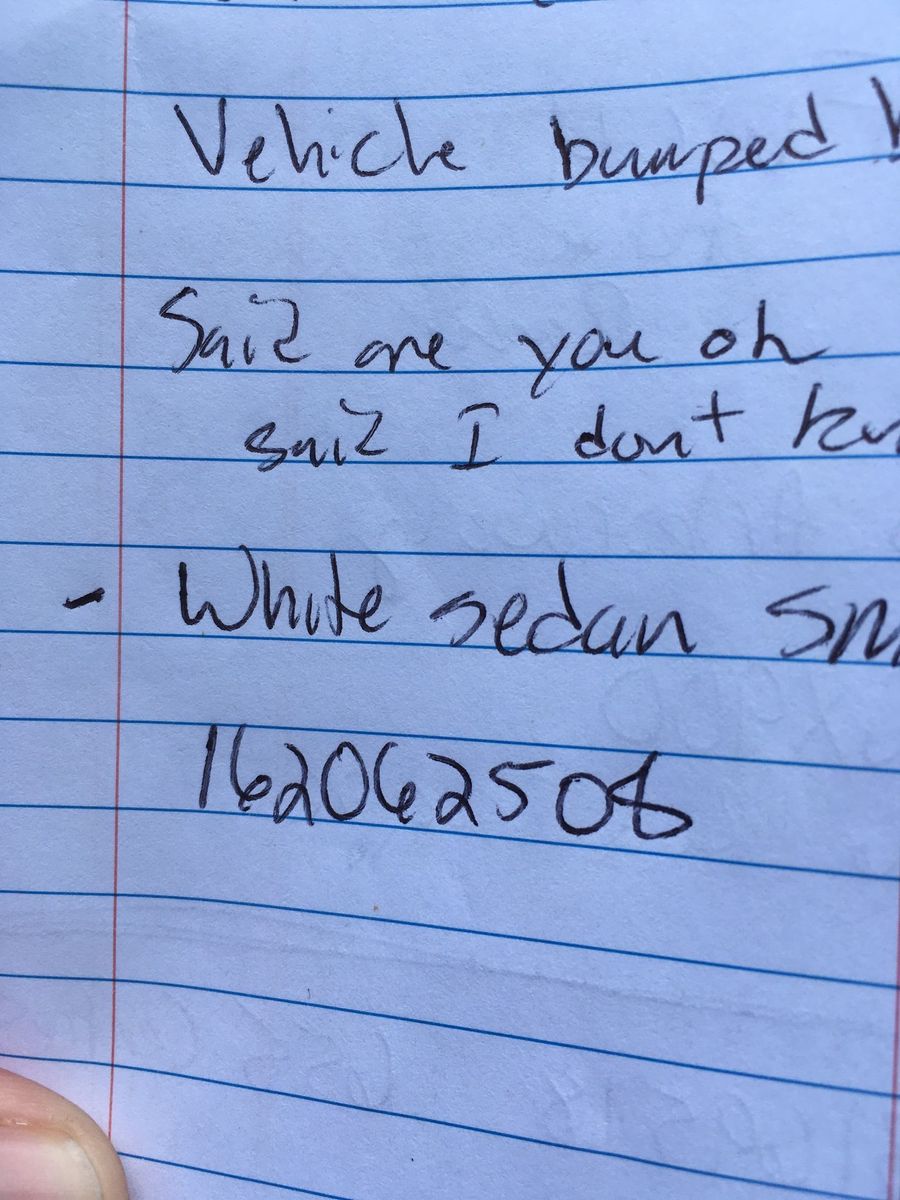 Vehicle bumped
Said are you oh
said I dont
- White sedan
162062508